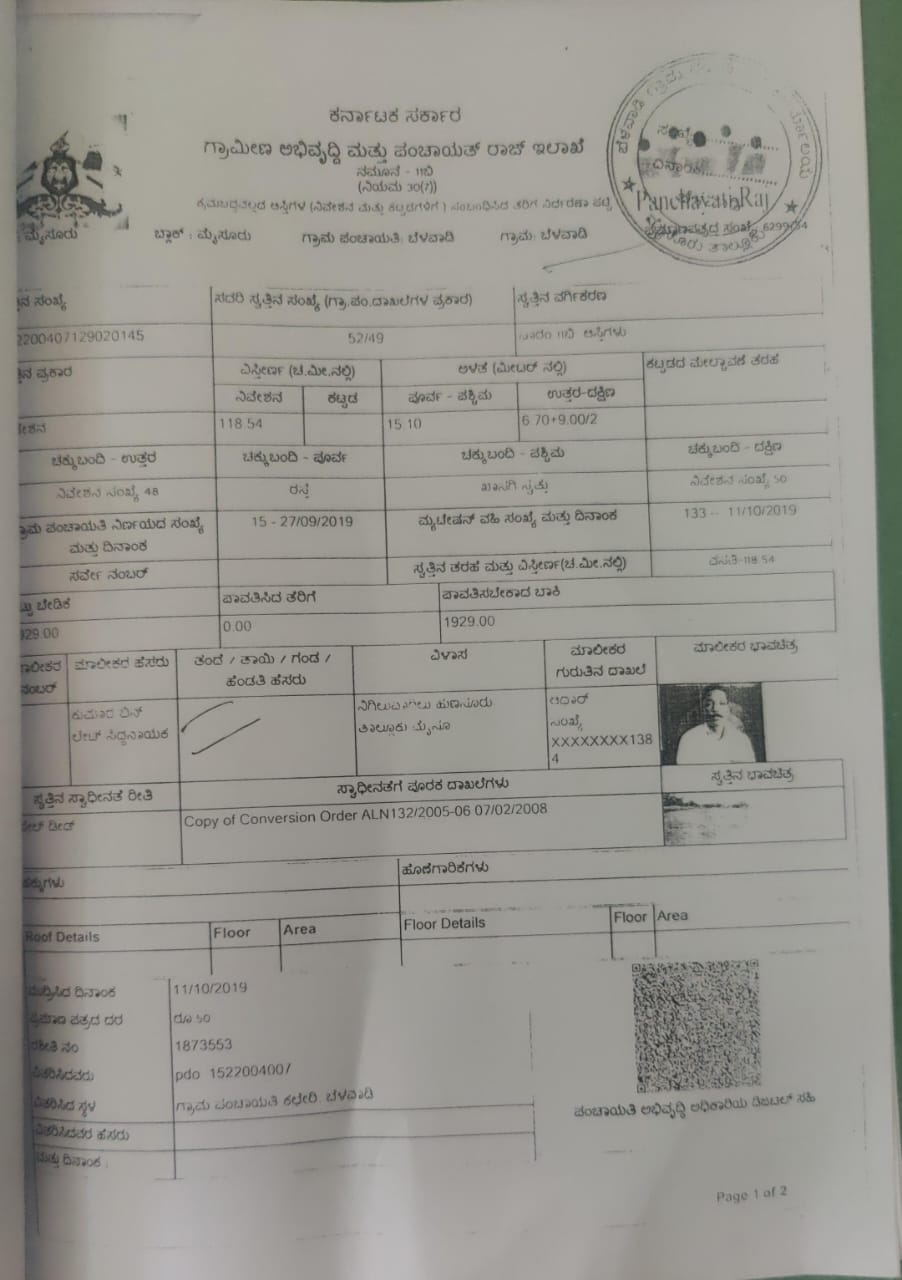 ಕರ್ನಾಟಕ ಸರ್ಕಾರ
ಗ್ರಾಮೀಣ ಅಭಿವೃದ್ಧಿ ಮತ್ತು ಪಂಚಾಯತ್ ರಾಜ್ ಇಲಾಖೆ
ನಮೂನೆ - 11ಬಿ
(ನಿಯಮ 30(7))
PanchayatiRaj
ಮೈಸೂರು ಬ್ಲಾಕ್ : ಮೈಸೂರು ಗ್ರಾಮ ಪಂಚಾಯತಿ: ಬೆಳವಾಡಿ ಗ್ರಾಮ: ಬೆಳವಾಡಿ
ಸಂಖ್ಯೆ ಸದರಿ ಸ್ವತ್ತಿನ ಸಂಖ್ಯೆ (ಗ್ರಾ.ಪಂ.ದಾಖಲೆಗಳ ಪ್ರಕಾರ) ಸ್ವತ್ತಿನ ವರ್ಗೀಕರಣ
2200407129020145 52/49 11ಬಿ ಆಸ್ತಿಗಳು
ಪ್ರಕಾರ ವಿಸ್ತೀರ್ಣ (ಚ.ಮೀ.ನಲ್ಲಿ) ಅಳತೆ (ಮೀಟರ್ ನಲ್ಲಿ) ಕಟ್ಟಡದ ಮೇಲ್ಛಾವಣಿ ತರಹ
ನಿವೇಶನ ಕಟ್ಟಡ ಪೂರ್ವ - ಪಶ್ಚಿಮ ಉತ್ತರ-ದಕ್ಷಿಣ
118.54 15.10 6.70+9.00/2
ಚಕ್ಕುಬಂದಿ - ಉತ್ತರ ಚಕ್ಕುಬಂದಿ - ಪೂರ್ವ ಚಕ್ಕುಬಂದಿ - ಪಶ್ಚಿಮ ಚಕ್ಕುಬಂದಿ - ದಕ್ಷಿಣ
ನಿವೇಶನ ಸಂಖ್ಯೆ 48 ರಸ್ತೆ ಖಾಸಗಿ ಸ್ವತ್ತು ನಿವೇಶನ ಸಂಖ್ಯೆ 50
ಪಂಚಾಯತಿ ನಿರ್ಣಯದ ಸಂಖ್ಯೆ ಮತ್ತು ದಿನಾಂಕ 15 - 27/09/2019 ಮ್ಯುಟೇಷನ್ ವಹಿ ಸಂಖ್ಯೆ ಮತ್ತು ದಿನಾಂಕ 133 -- 11/10/2019
ಸರ್ವೇ ನಂಬರ್ ಸ್ವತ್ತಿನ ತರಹ ಮತ್ತು ವಿಸ್ತೀರ್ಣ(ಚ.ಮೀ.ನಲ್ಲಿ) ವಸತಿ-118.54
ಬೇಡಿಕೆ ಪಾವತಿಸಿದ ತೆರಿಗೆ ಪಾವತಿಸಬೇಕಾದ ಬಾಕಿ
1929.00 0.00 1929.00
ಮಾಲೀಕರ ನಂಬರ್ ಮಾಲೀಕರ ಹೆಸರು ತಂದೆ / ತಾಯಿ / ಗಂಡ / ಹೆಂಡತಿ ಹೆಸರು ವಿಳಾಸ ಮಾಲೀಕರ ಗುರುತಿನ ದಾಖಲೆ ಮಾಲೀಕರ ಭಾವಚಿತ್ರ
ಕುಮಾರ ಬಿನ್ ಲೇಟ್ ಸಿದ್ದನಾಯಕ ಹುಣಸೂರು ತಾಲ್ಲೂಕು ಮೈಸೂ ಆಧಾರ್ ಸಂಖ್ಯೆ XXXXXXXX1384
ಸ್ವತ್ತಿನ ಸ್ವಾಧೀನತೆ ರೀತಿ ಸ್ವಾಧೀನತೆಗೆ ಪೂರಕ ದಾಖಲೆಗಳು ಸ್ವತ್ತಿನ ಭಾವಚಿತ್ರ
ಸೇಲ್ ಡೀಡ್ Copy of Conversion Order ALN132/2005-06 07/02/2008
ಹಕ್ಕುಗಳು ಹೊಣೆಗಾರಿಕೆಗಳು
Roof Details Floor Area Floor Details Floor Area
ಮುದ್ರಿಸಿದ ದಿನಾಂಕ 11/10/2019
ಪ್ರಮಾಣ ಪತ್ರದ ದರ ರೂ 50
ರಶೀತಿ ನಂ 1873553
ವಿತರಿಸಿದವರು pdo 1522004007
ವಿತರಿಸಿದ ಸ್ಥಳ ಗ್ರಾಮ ಪಂಚಾಯತಿ ಕಛೇರಿ. ಬೆಳವಾಡಿ
ವಿತರಿಸಿದವರ ಹೆಸರು
ಮತ್ತು ದಿನಾಂಕ :
ಪಂಚಾಯತಿ ಅಭಿವೃದ್ಧಿ ಅಧಿಕಾರಿಯ ಡಿಜಿಟಲ್ ಸಹಿ
Page 1 of 2